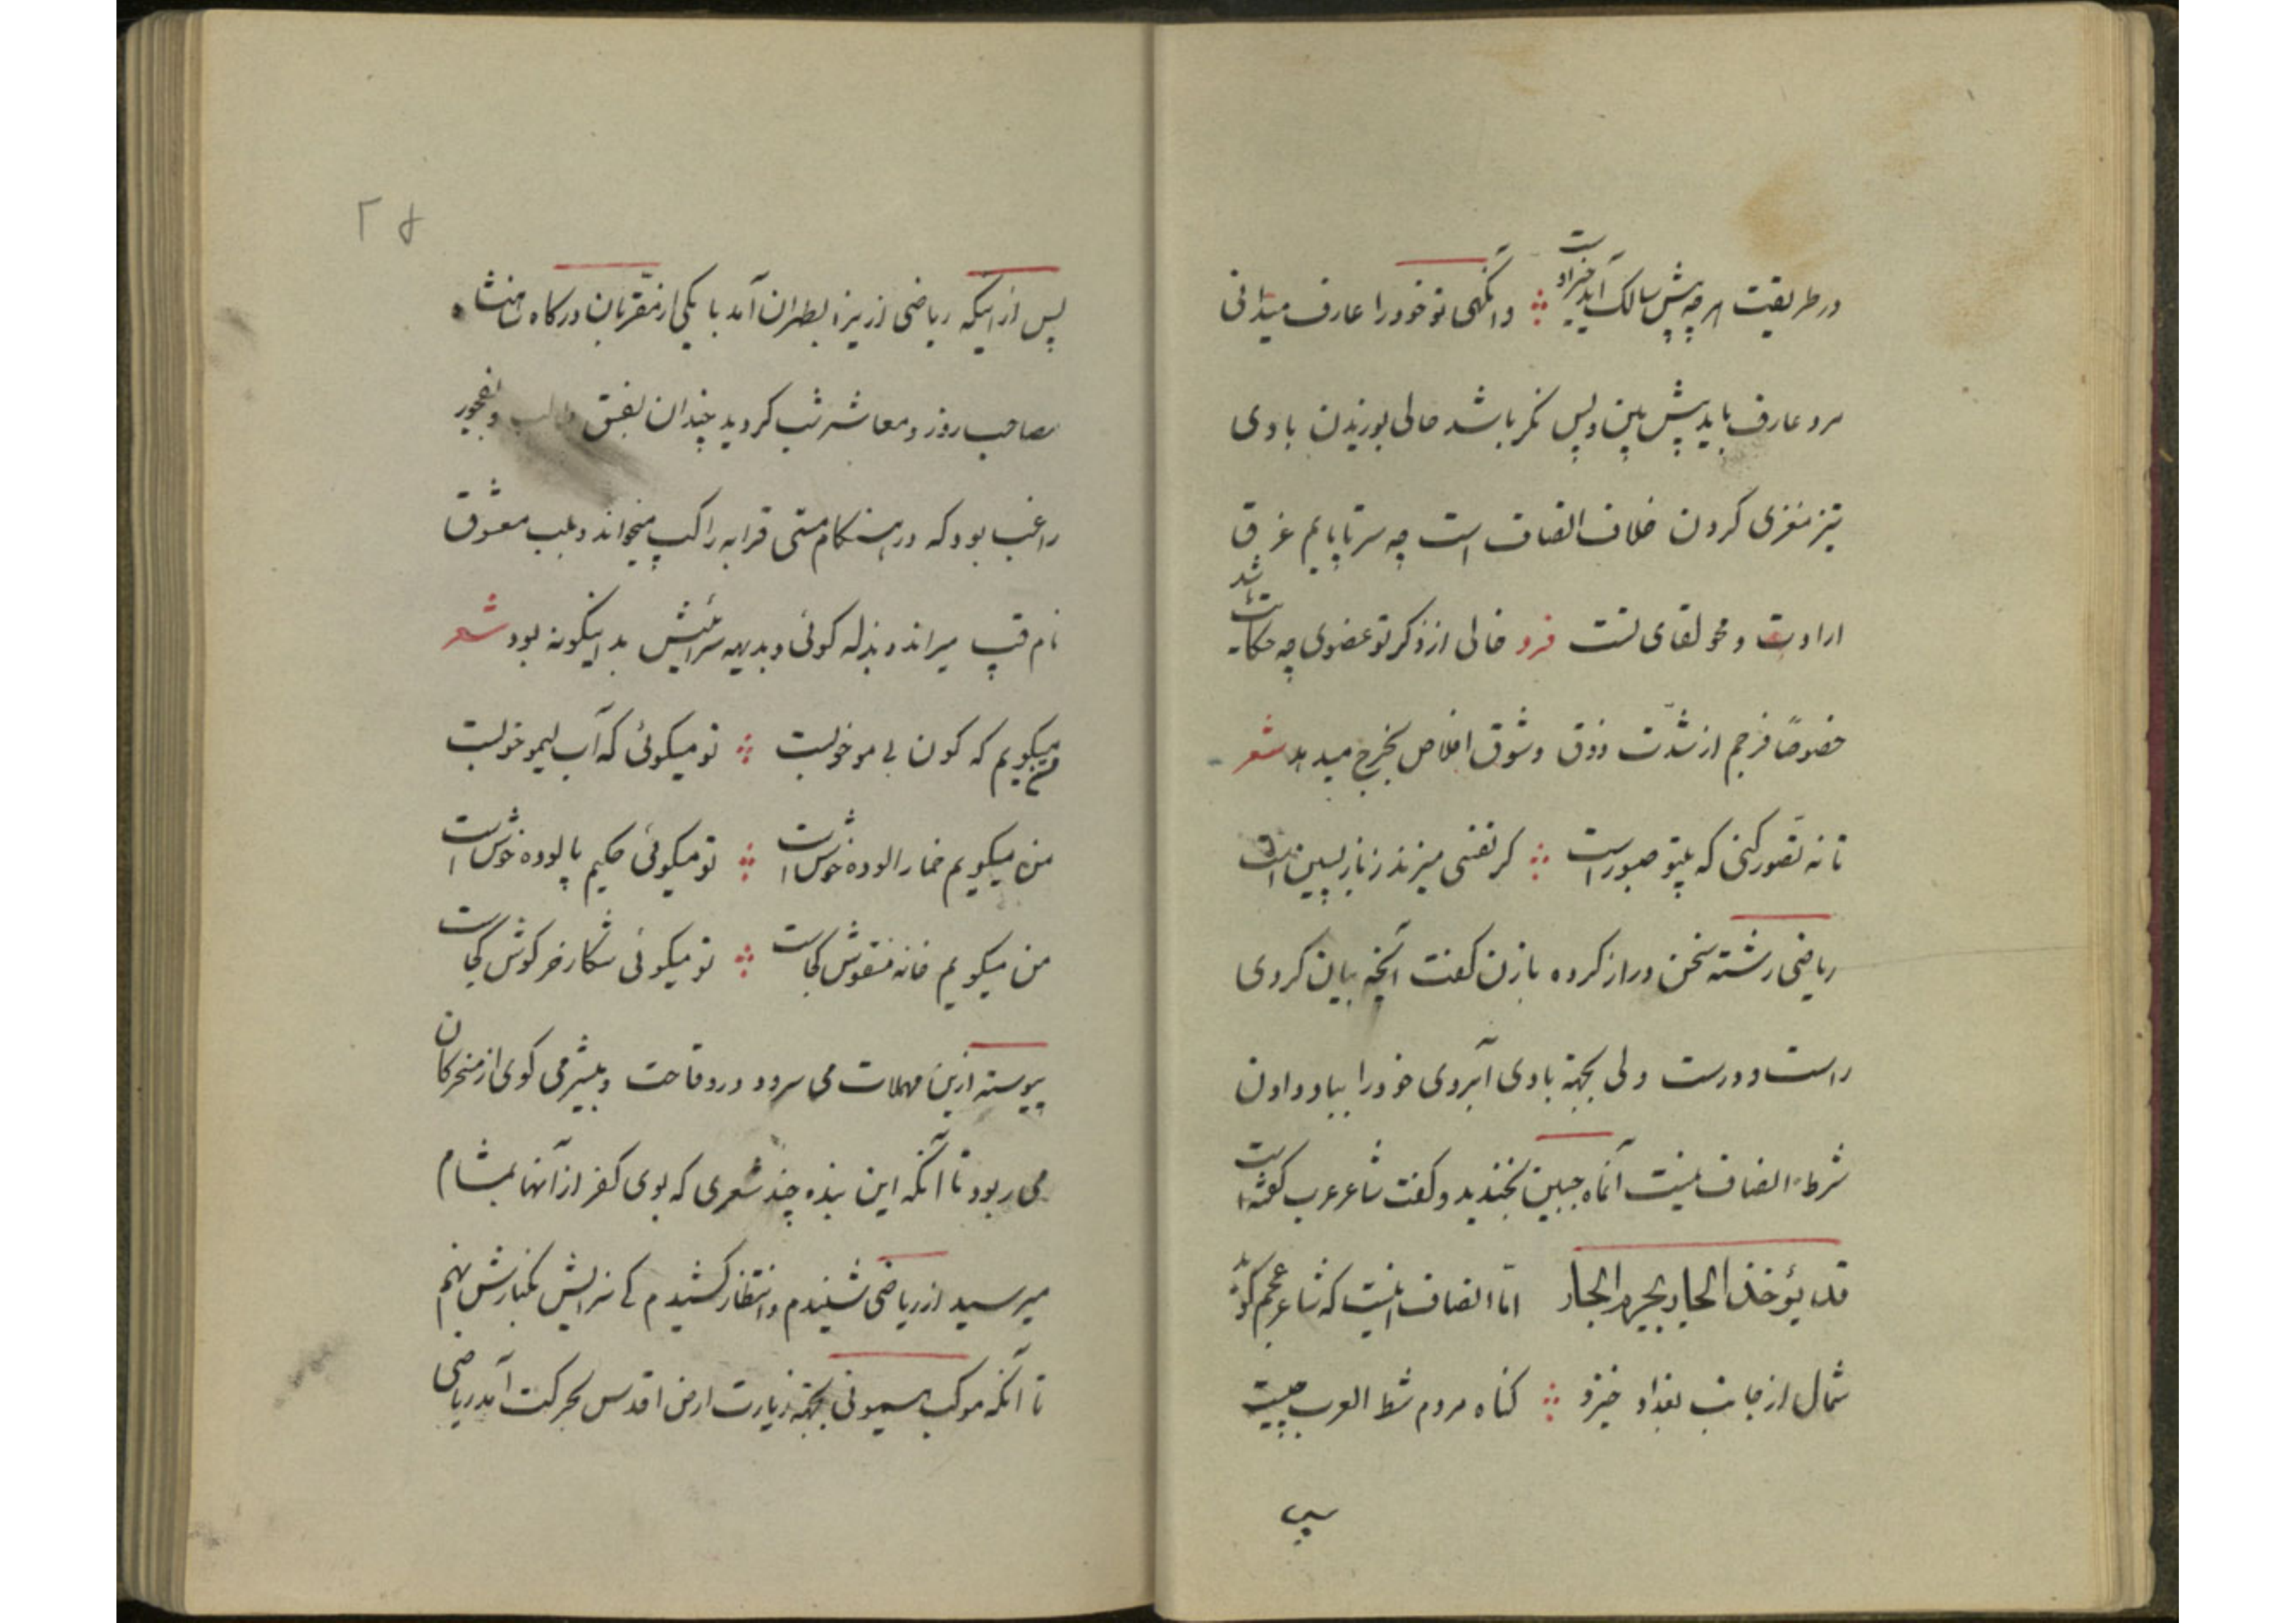 در طریقیت هر چه پیش سالک آید خیر اوست وانگهی تو خود را عارف میدانی
مرد عارف باید پیش بین و پس نکر باشد حالی بوزیدن بادی
تیز مغزی کردن خلاف انصاف است چه سرتاپایم غرق
ارادت و محو لقای تست فرد خالی از ذکر تو عضوی چه حکایت باشد
خصوصًا فرجم از شدّت ذوق و شوق اخلاص بخرج میدهد شعر
تا نه تصّور کنی که بیتو صبور است کر نفسی میزند ز باز پسین است
ریاضی رشته سخن دراز کرده بازن کفت آنچه بیان کردی
راست و درست ولی بجهة بادی آبروی خود را بباد دادن
شرط انصاف نیست آنماه جبین بخندید و کفت شاعر عرب کفته است
قد یؤخذ الجار بجرم الجار امّا انصاف اینست که شاعر عجم کوید
شمال از جانب بغداد خیزد کناه مردم شط العرب چیست
پس
۲۵
پس از اینکه ریاضی از یزد بطهران آمد با یکی از مقّربان درکاه شاهنشاه
مصاحب روز و معاشر شب کردید چندان بفسق و فجور
راغب بود که در هنکام مستی قرابه را کپ میخواند و بلب معشوق
نام قپ میراند و بذله کوئی و بدیهه سرائیش بداینکونه بود شعر
من میکویم که کون بی مو خوبست تو میکوئی که آب لیمو خوبست
من میکویم خمار الوده خوش است تو میکوئی حکیم پالوده خوش است
من میکویم خانه منقوش کجاست تو میکوئی شکار خرکوش کجاست
پیوسته ازین مهملات می سرود و در وقاحت و بیشرمی کوی از منحرکان
می ربود تا آنکه این نبذه چند شعری که بوی کفر از آنها بمشام
میرسید از ریاضی شنیدم و انتظار کشیدم که سزایش بکنارش نهم
تا آنکه موکب همیونی بجهة زیارت ارض اقدس بحرکت آمد ریاضی